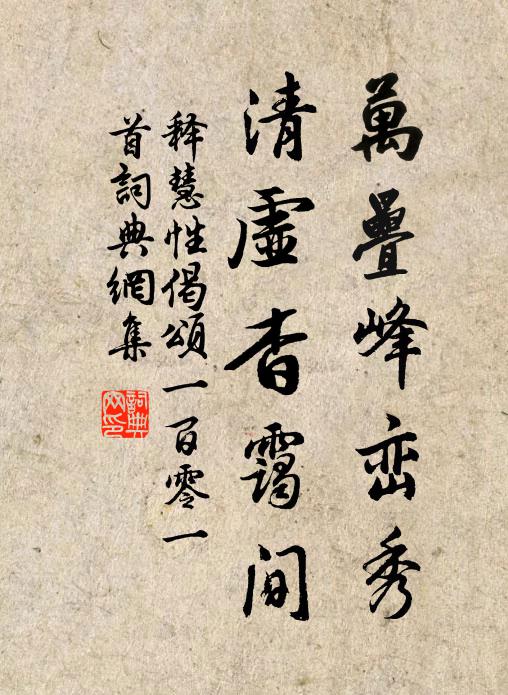 萬疊峰峦秀
清虛杳靄间
释慧性偈頌一百零一
首詞典網集
詞典
网印